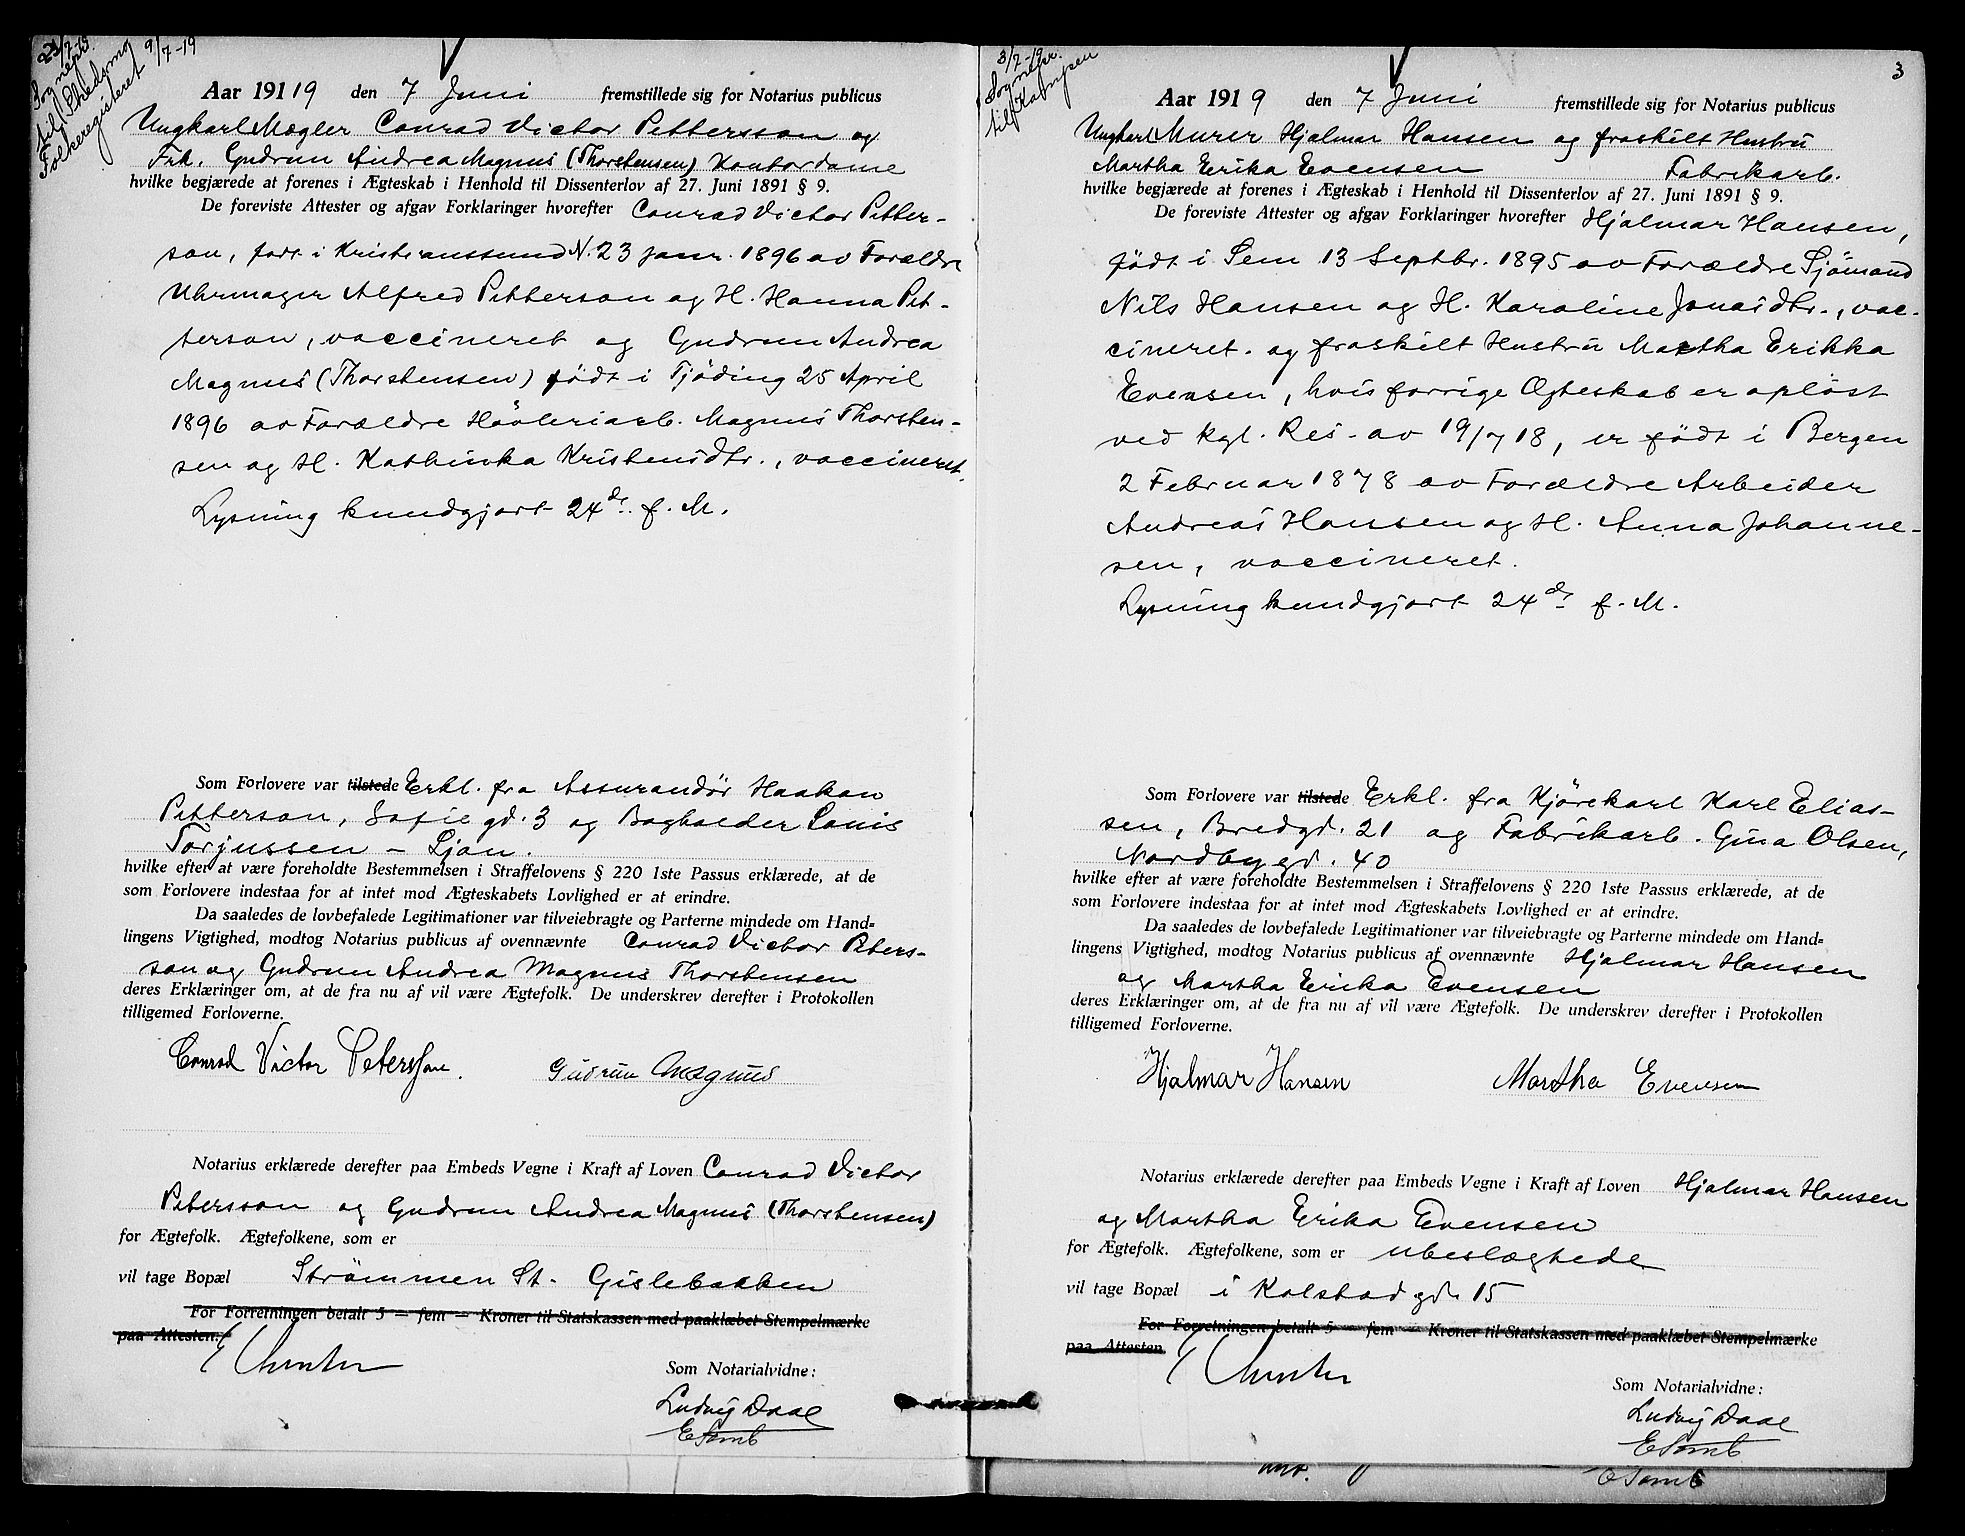 21/7-19
Sognepr.
til Skedsmo
Folkeregisteret 9/7-19
Aar 191 19 den 7 Juni fremstillede sig for Notarius publicus
Ungkarl Mægler Conrad Victor Pettersson og
Frk. Gudrun Andrea Magnus (Thorstensen) Kontordame
hvilke begjærede at forenes i Ægteskab i Henhold til Dissenterlov af 27. Juni 1891 § 9.
De foreviste Attester og afgav Forklaringer hvorefter Conrad Victor Petter-
son, født i Kristianssund N. 23 janr. 1896 av Forældre
Uhrmager Alfred Petterson og H. Hanna Pet-
terson, vaccineret og Gudrun Andrea
Magnus (Thorstensen) født i Tjöding 25 April
1896 av Forældre Høvleriarb. Magnus Thorsten-
sen og H. Kathinka Kristensdtr., vaccineret.
Lysning kundgjort 24ds. f. M.
Som Forlovere var tilstede Erkl. fra Assurandør Haakon
Petterson, Sofiegd. 3 og Bogholder Louis
Torjussen - Ljan.
hvilke efter at være foreholdte Bestemmelsen i Straffelovens § 220 1ste Passus erklærede, at de
som Forlovere indestaa for at intet mod Ægteskabets Lovlighed er at erindre.
Da saaledes de lovbefalede Legitimationer var tilveiebragte og Parterne mindede om Hand=
lingens Vigtighed, modtog Notarius publicus af ovennævnte Conrad Victor Peters-
son og Gudrun Andrea Magnus Thorstensen
deres Erklæringer om, at de fra nu af vil være Ægtefolk. De underskrev derefter i Protokollen
tilligemed Forloverne.
Conrad Victor Petersson. Gudrun Magnus
Notarius erklærede derefter paa Embeds Vegne i Kraft af Loven Conrad Victor
Petersson og Gudrun Andrea Magnus (Thorstensen)
for Ægtefolk. Ægtefolkene, som er
vil tage Bopæl Strømmen St. Gislebakken
For Forretningen betalt 5 — fem — Kroner til Statskassen med paaklæbet Stempelmærke
paa Attesten.
Som Notarialvidne:
Ludvig Daae
E Tomb
3/7-19.
Sognepr.
til Kampen
3
Aar 191 9 den 7 Juni fremstillede sig for Notarius publicus
Ungkarl Murer Hjalmar Hansen og fraskilt Hustru
Martha Erika Evensen Fabrikarb.
hvilke begjærede at forenes i Ægteskab i Henhold til Dissenterlov af 27. Juni 1891 § 9.
De foreviste Attester og afgav Forklaringer hvorefter Hjalmar Hansen,
født i Sem 13 Septbr. 1895 av Forældre Sjömand
Nils Hansen og H. Karoline Jonasdtr., vac-
cineret. og fraskilt Hustru Martha Erikka
Evensen, hvis forrige Ægteskab er opløst
ved kgl. Res. av 19/7 18, er født i Bergen
2 Februar 1878 av Forældre Arbeider
Andreas Hansen og H. Anna Johanne-
sen, vaccineret.
Lysning kundgjort 24ds f. M.
Som Forlovere var tilstede Erkl. fra Kjørekarl Karl Elias-
sen, Bredgd. 21 og Fabrikarb. Gina Olsen,
Nordbygd. 40
hvilke efter at være foreholdte Bestemmelsen i Straffelovens § 220 1ste Passus erklærede, at de
som Forlovere indestaa for at intet mod Ægteskabets Lovlighed er at erindre.
Da saaledes de lovbefalede Legitimationer var tilveiebragte og Parterne mindede om Hand=
lingens Vigtighed, modtog Notarius publicus af ovennævnte Hjalmar Hansen
og Martha Erika Evensen
deres Erklæringer om, at de fra nu af vil være Ægtefolk. De underskrev derefter i Protokollen
tilligemed Forloverne.
Hjalmar Hansen Martha Evensen
Notarius erklærede derefter paa Embeds Vegne i Kraft af Loven Hjalmar Hansen
og Martha Erika Evensen
for Ægtefolk. Ægtefolkene, som er ubeslægtede
vil tage Bopæl i Kolstadgd. 15
For Forretningen betalt 5 — fem — Kroner til Statskassen med paaklæbet Stempelmærke
paa Attesten
Som Notarialvidne:
Ludvig Daae
E Tomb
E Tomb